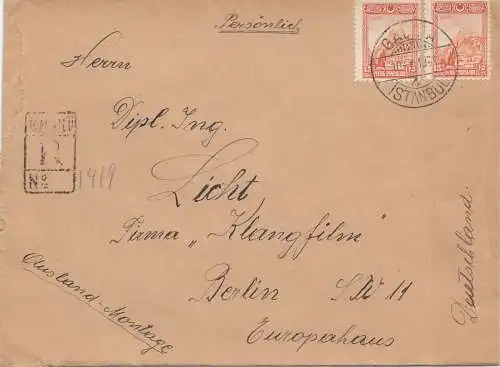 Persönlich
Herrn
Dipl. Ing.
Licht
Firma „Klangfilm"
Berlin SW 11
Europahaus
Ausland-Montage
Deutschland.
R
No 1419
GALATA
ISTANBUL